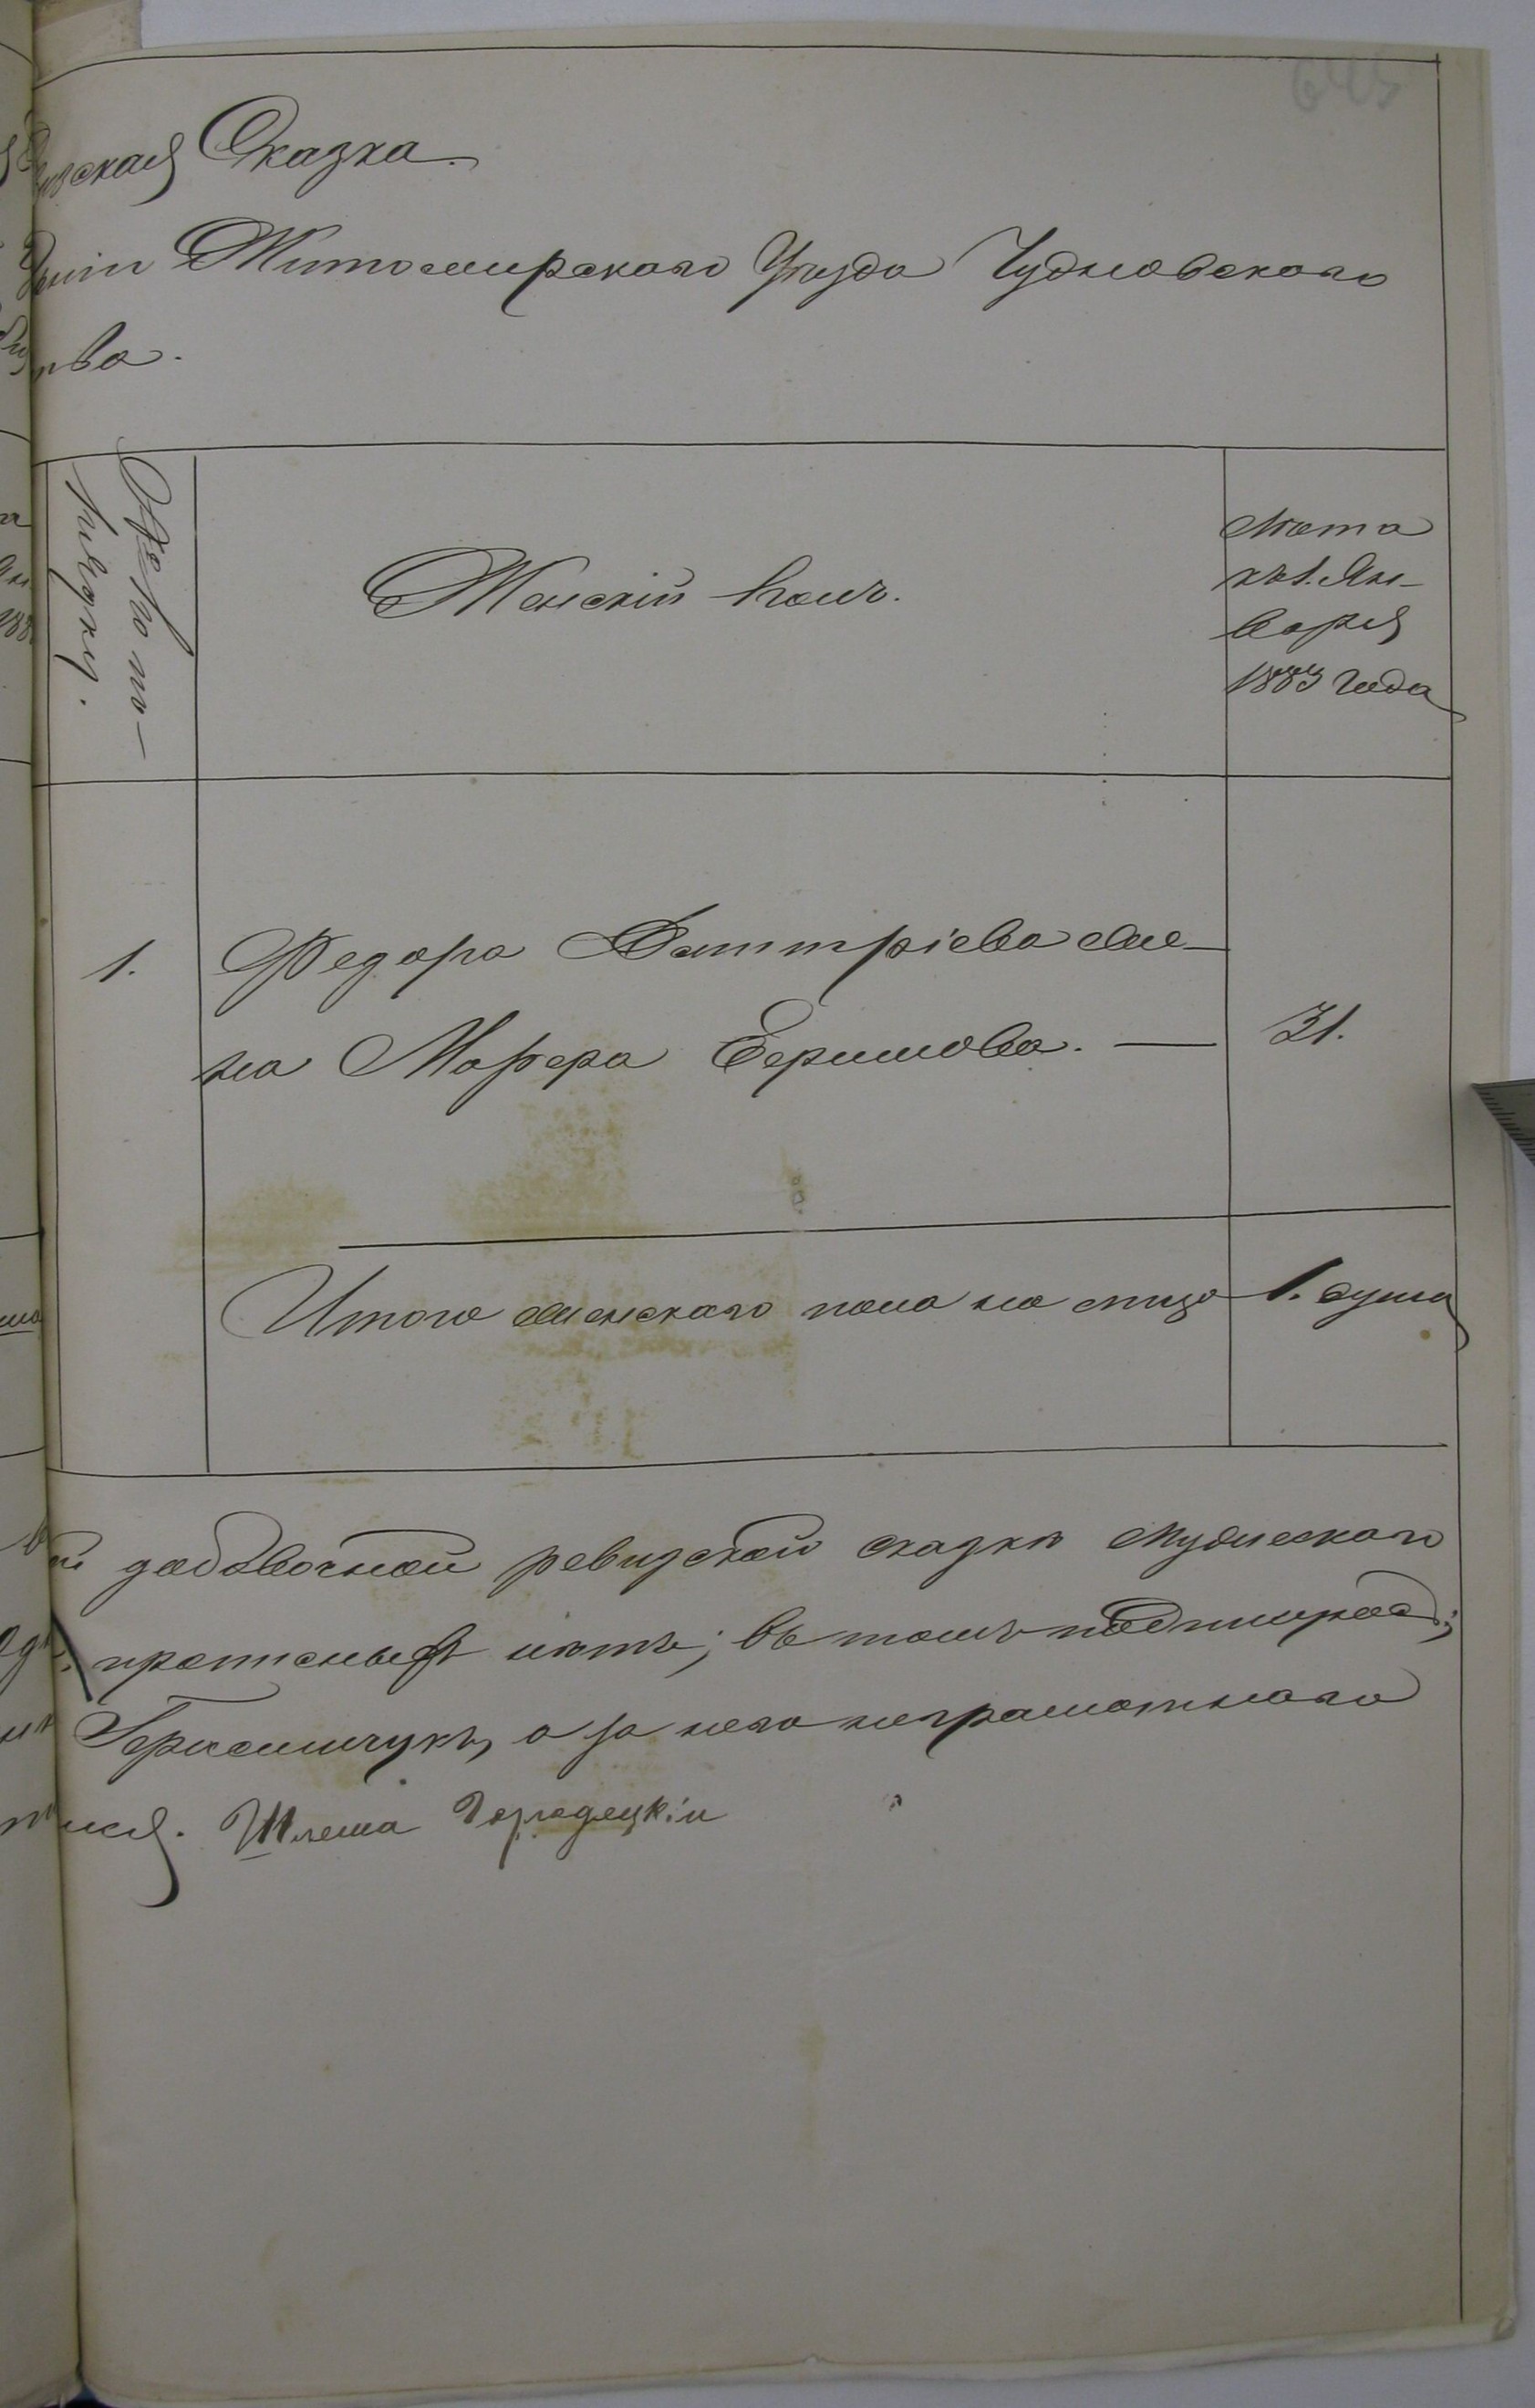 645
ская Сказка.
Житомирскаго Уѣзда Чудновскаго
ва.
№№ по по-
рядку.
Женскій полъ.
Лѣта
къ 1. Ян-
варя
1883 года
1. Федора Дмитріева же-
на Марфа Ефимова. — 31.
Итого женскаго пола на лицо 1. душа
добавочной ревизской сказкѣ мужескаго
прописныхъ нѣтъ; въ томъ подписуюсь;
Герасимчукъ, а за него неграмотнаго
Шлема Городецкій